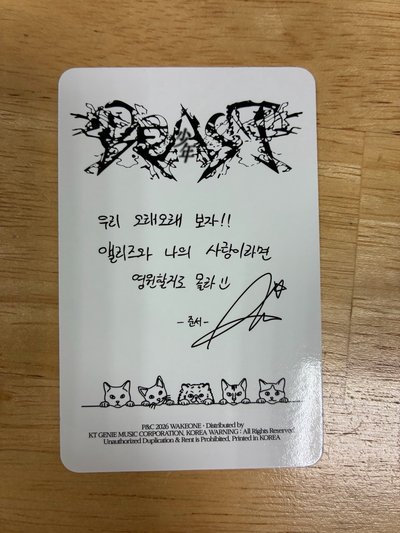 BEAST
少年
우리 오래오래 보자!!
앨리즈와 나의 사랑이라면
영원할지도 몰라 !!
- 준서 -
P&C 2026 WAKEONE · Distributed by
KT GENIE MUSIC CORPORATION, KOREA WARNING : All Rights Reserved
Unauthorized Duplication & Rent is Prohibited. Printed in KOREA